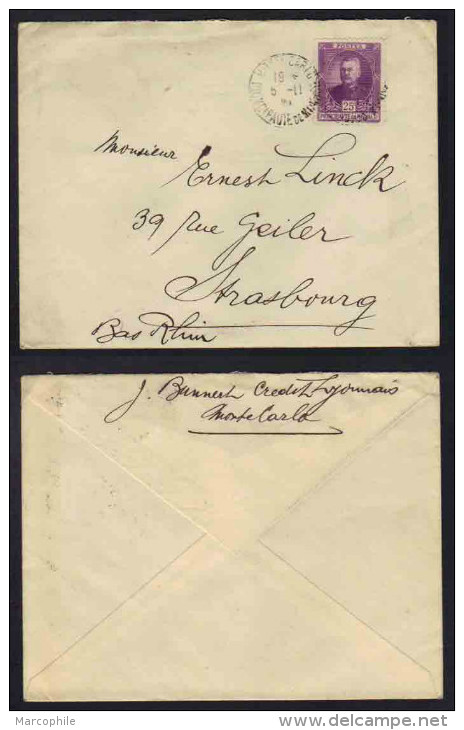 POSTES
25
PRINCIPAUTÉ DE MONACO
MONTE CARLO
PRINCIPAUTE DE MONACO
18
6 -11
Monsieur
Ernest Linck
39 Rue Geiler
Strasbourg
Bas Rhin
J. Bannerth Credit Lyonnais
Monte Carlo
Marcophile
www.delcampe.net